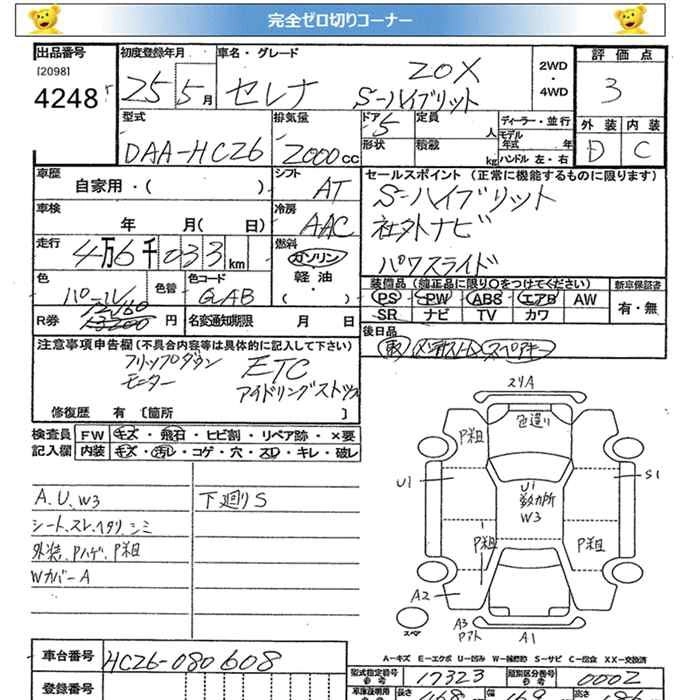 完全ゼロ切りコーナー
出品番号
[2098]
4248
初度登録年月
25 5月
車名・グレード
セレナ
20X
S-ハイブリット
2WD
・
4WD
評価点
3
外装 内装
D C
型式
DAA-HC26
排気量
2000cc
ドア
5
定員
人
形状
積載
kg
ディーラー・並行
モデル年式 年
ハンドル 左・右
車歴
自家用・( )
シフト
AT
車検
年 月( 日)
冷房
AAC
走行
4万6千033km
燃料
ガソリン
軽・油
・( )
色
パール
色替
色コード
QAB
R券
13200 円
12460
名変通知期限 月 日
セールスポイント(正常に機能するものに限ります)
S-ハイブリット
社外ナビ
パワスライド
装備品(純正品に限り○をつけてください)
PS PW ABS エアB AW
SR ナビ TV カワ
新車保証書
有・無
後日品
スペアキー
注意事項申告欄(不具合内容等は具体的に記入して下さい)
フリップダウン
モニター
ETC
アイドリングストップ
修復歴 有 [箇所 ]
検査員
記入欄
FW キズ・飛石・ヒビ割・リペア跡・×要
内装 キズ・汚レ・コゲ・穴・スレ・キレ・破レ
A、U、W3
シート、スレ、ヘタリ、シミ
外装、Pハゲ、P粗
Wカバー A
下廻りS
スリA
色違い
P粗
U1
S1
U1
数カ所
W3
P粗
P粗
A2
スペア
A3
アト
A1
A-キズ E-エクボ U-凹み W-補修跡 S-サビ C-腐食 XX-交換済
車台番号
HC26-080608
登録番号
型式指定番号
参考
17323
類別区分番号
参考
0002
長さ